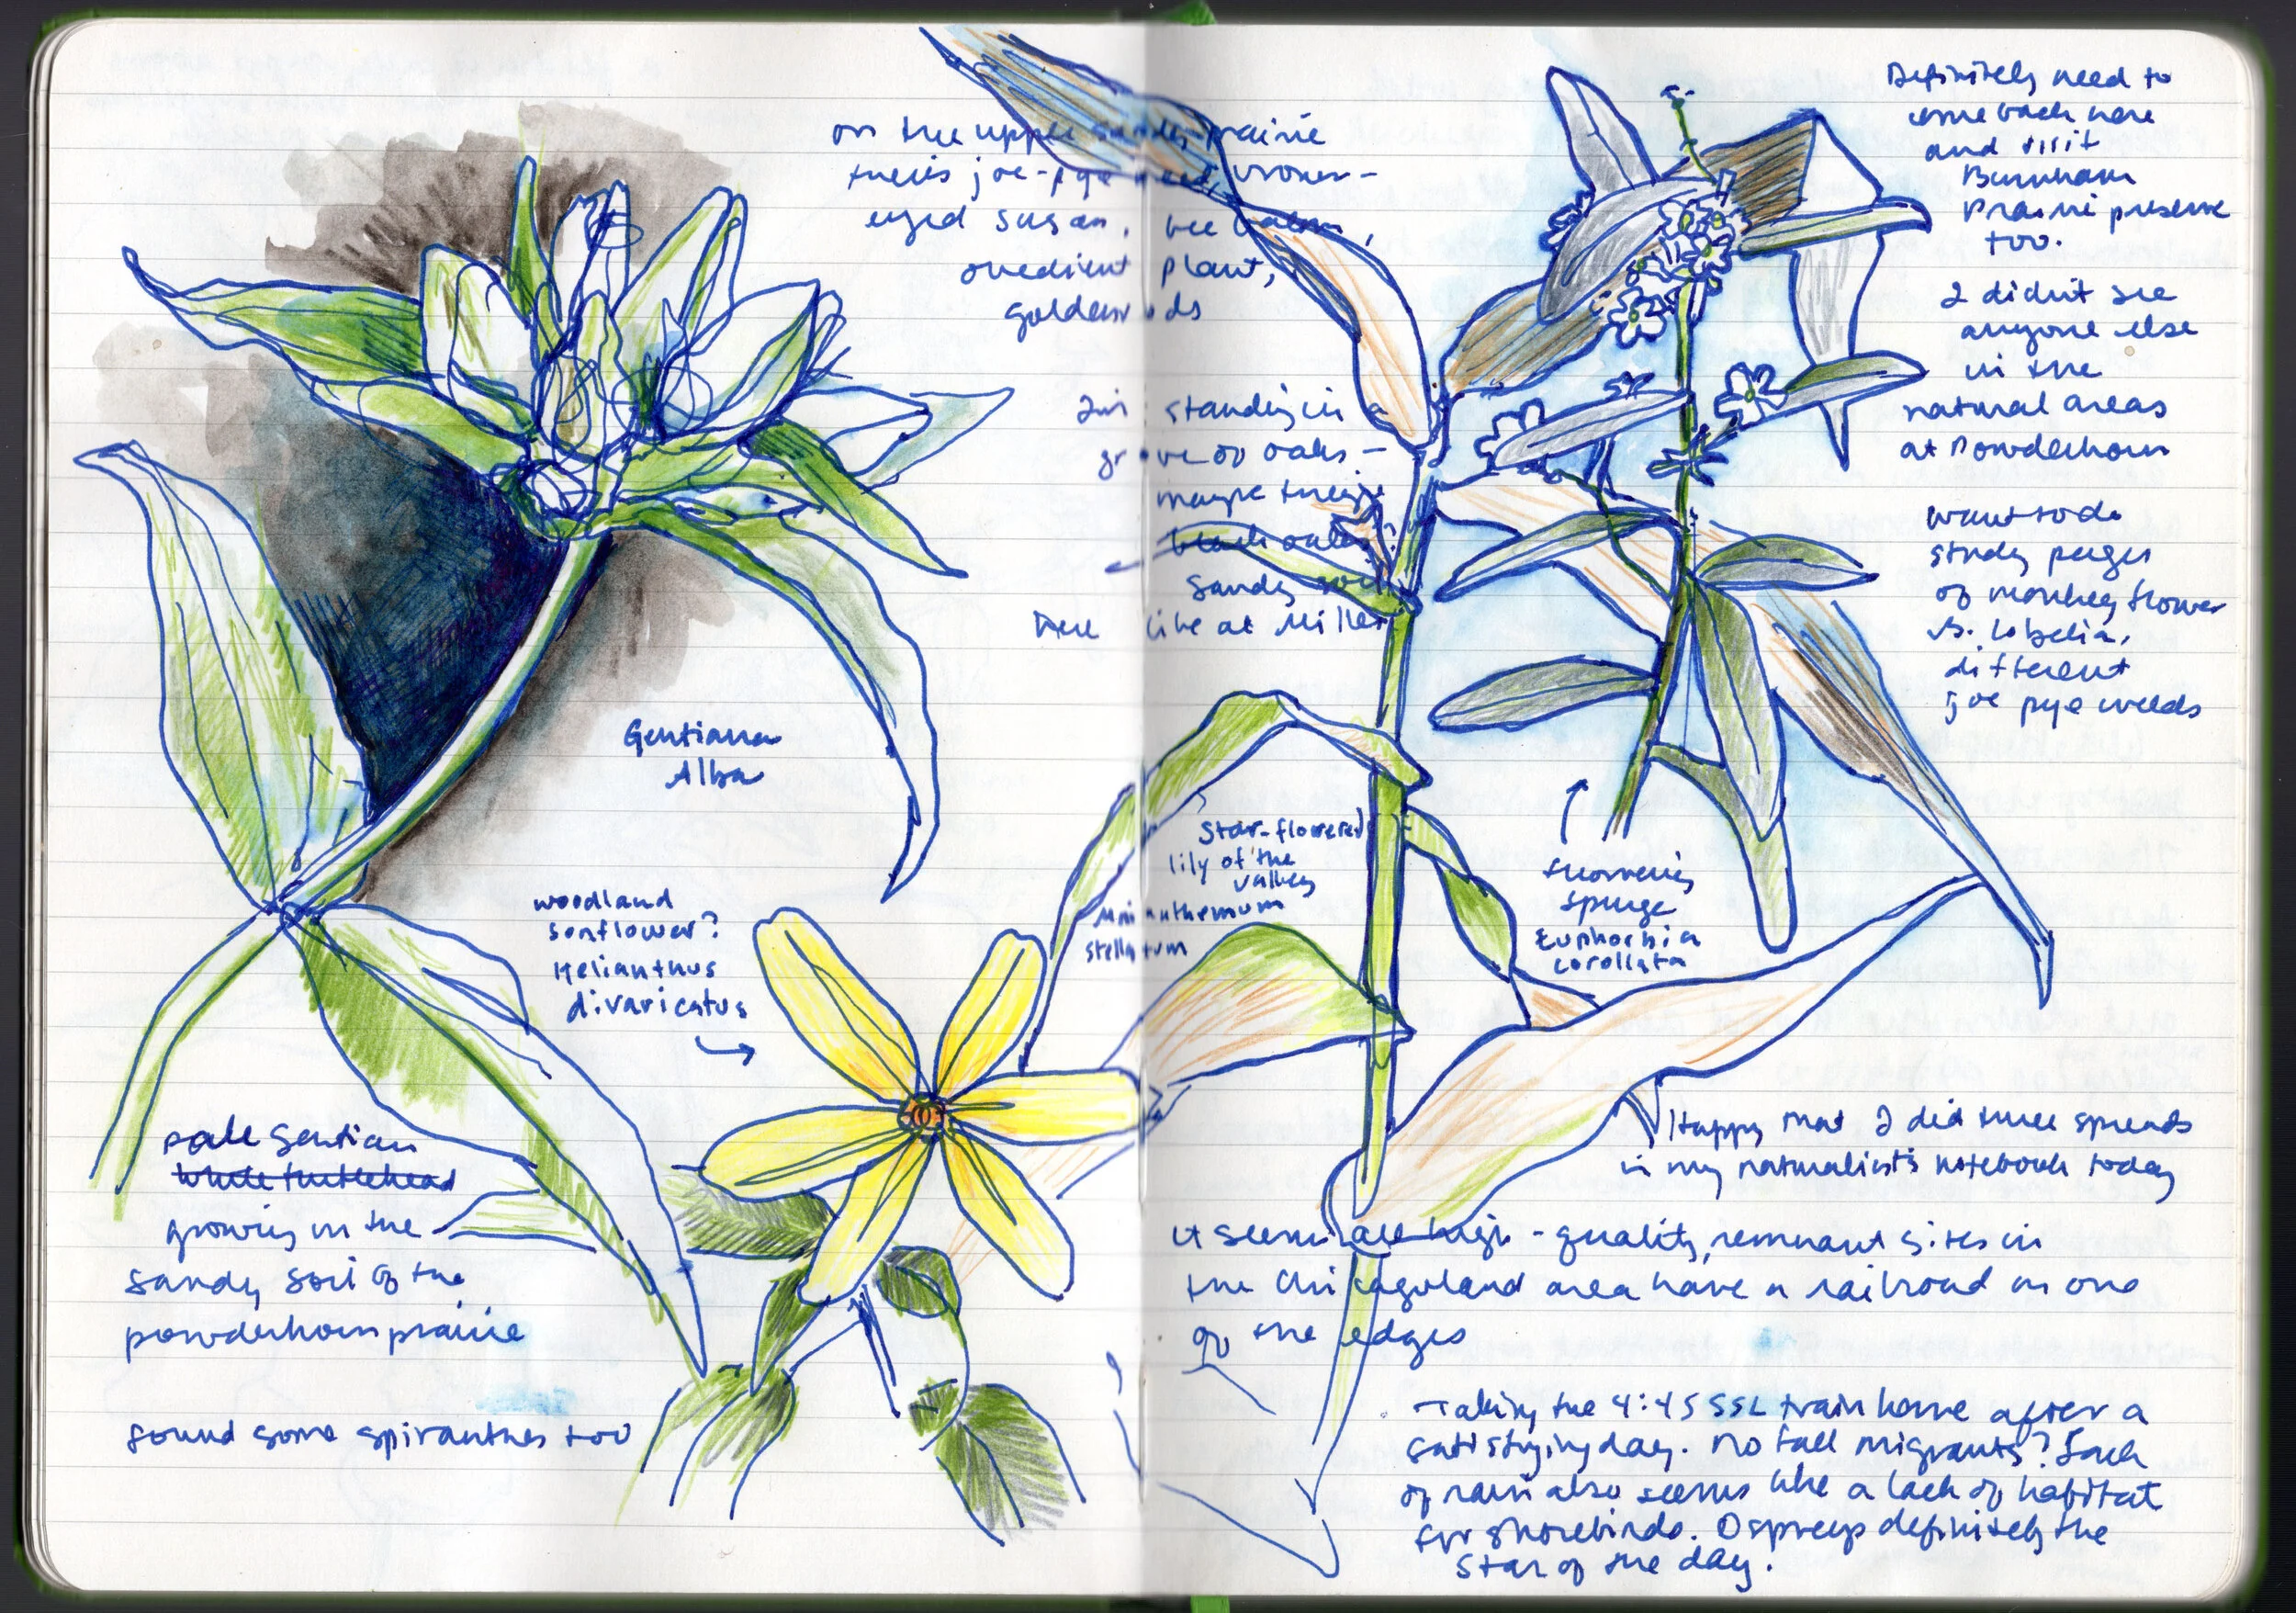 on the upper sandy prairie
there's joe-pye weed, brown-
eyed susan, bee balm,
obedient plant,
goldenrods
I'm standing in a
grove of oaks -
maybe they're
black oaks?
Sandy soil
here like at Miller
Gentiana
Alba
woodland
sunflower?
Helianthus
divaricatus
pale gentian
white turtlehead
growing in the
sandy soil of the
powderhorn prairie
found some spiranthes too
Star-flowered
lily of the
valley
Maianthemum
stellatum
flowering
spurge
Euphorbia
corollata
Definitely need to
come back here
and visit
Burnham
Prairie preserve
too.
I didn't see
anyone else
in the
natural areas
at Powderhorn
want to do
study pages
of monkey flower
vs. lobelia,
different
joe pye weeds
Happy that I did three spreads
in my naturalist's notebook today
it seems all high-quality, remnant sites in
the Chicagoland area have a railroad on one
of the edges
Taking the 4:45 SSL train home after a
satisfying day. No fall migrants? Lack
of rain also seems like a lack of habitat
for shorebirds. Ospreys definitely the
star of the day.